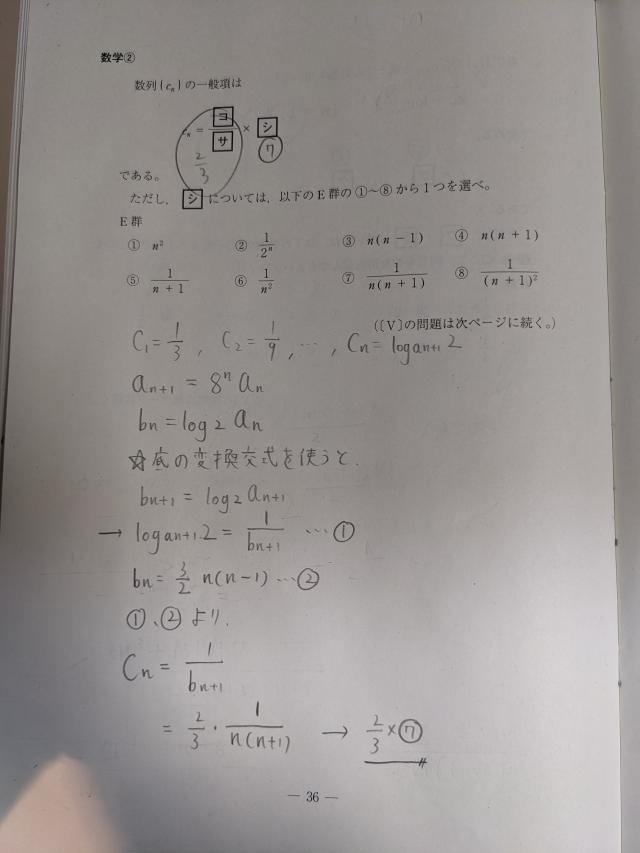 数学②
数列{cₙ}の一般項は
cₙ = コ/サ × シ
2/3 ⑦
である。
ただし、シについては、以下のE群の①〜⑧から1つを選べ。
E群
① n² ② 1/2ⁿ ③ n(n − 1) ④ n(n + 1)
⑤ 1/(n + 1) ⑥ 1/n² ⑦ 1/(n(n + 1)) ⑧ 1/(n + 1)²
(〔V〕の問題は次ページに続く。)
C₁ = 1/3 , C₂ = 1/9 , … , Cn = log aₙ₊₁ 2
aₙ₊₁ = 8ⁿ aₙ
bn = log₂ an
☆底の変換交式を使うと.
bn+1 = log₂ an+1
→ log an+1 2 = 1/bn+1 … ①
bn = 3/2 n(n−1) … ②
①、②より.
Cn = 1/bn+1
= 2/3 · 1/(n(n+1)) → 2/3 × ⑦
— 36 —